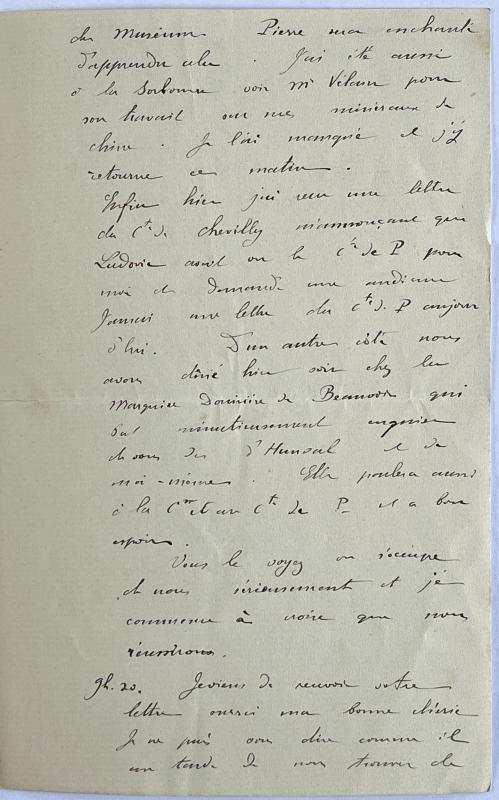 du Muséum Pierre sera enchanté
d'apprendre cela. J'ai été aussi
à la Sorbonne voir Mr Vélain pour
son travail sur mes minéraux de
chine. Je l'ai manqué et j'y
retourne ce matin.
Enfin hier j'ai reçu une lettre
du Cte de Chevilly m'annonçant que
Ludovic avait vu la Csse de P pour
moi et demandé une audience
J'aurai une lettre du Cte de P aujour
d'hui. D'un autre côté nous
avons dîné hier soir chez la
Marquise de Beauvoir qui
s'est minutieusement enquise
de vous des d'Hunsal et de
moi-même. Elle parlera aussi
à la Csse et au Cte de P- et a bon
espoir.
Vous le voyez on s'occupe
de nous sérieusement et je
commence à croire que nous
réussirons.
9h.20. Je viens de recevoir votre
lettre merci ma bonne chérie
Je ne puis vous dire comme il
me tarde de nous trouver de